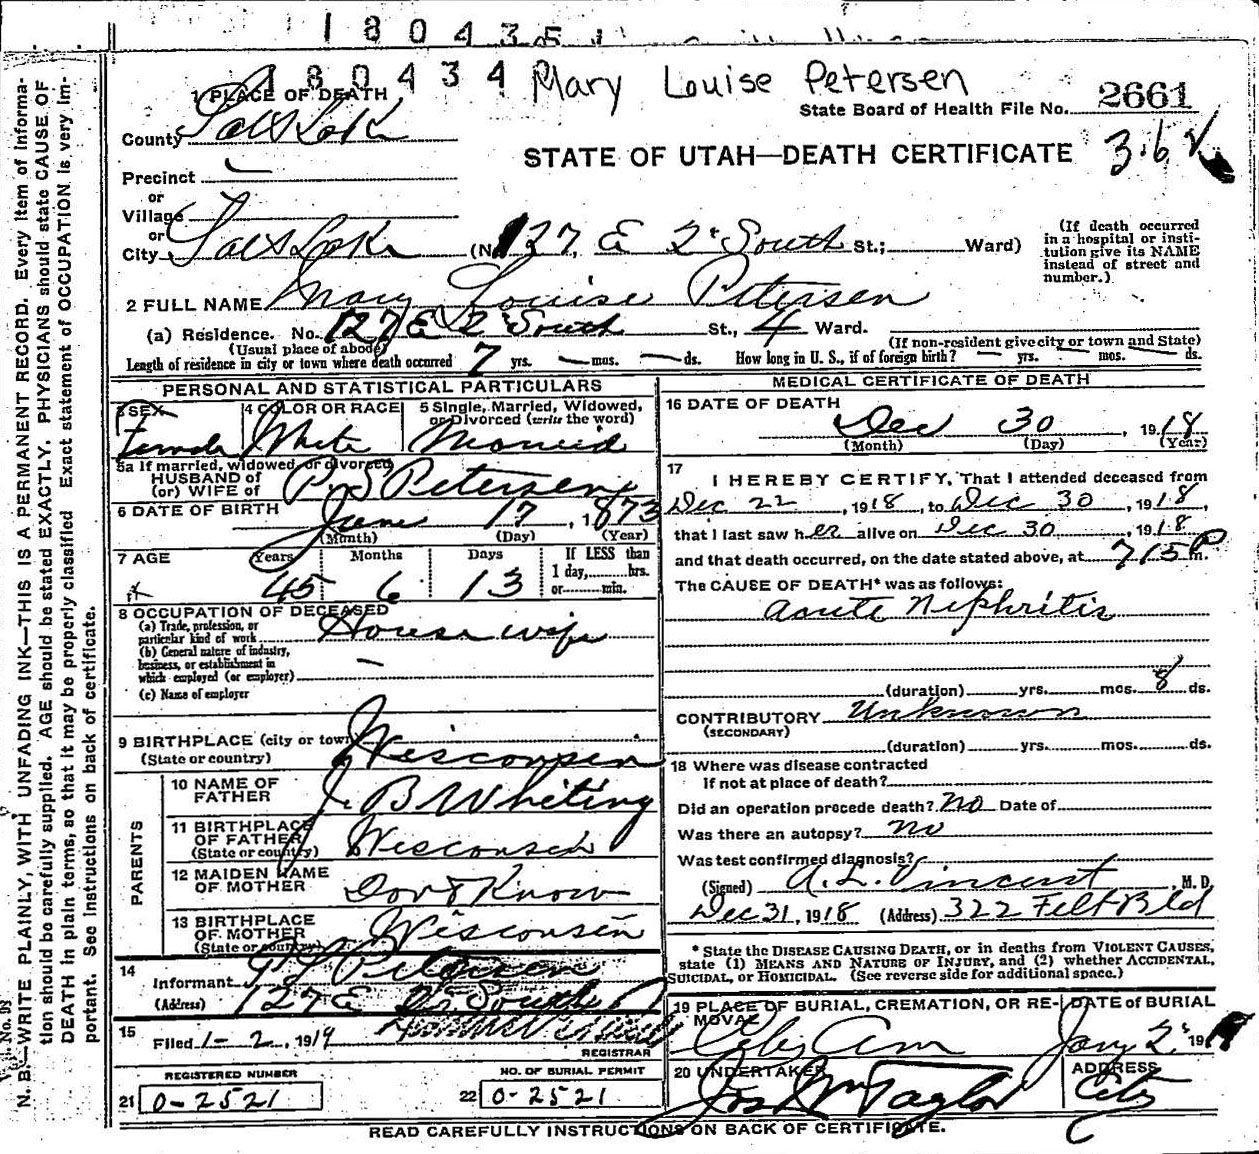 1 8 0 4 3 5
1 8 0 4 3 4 Mary Louise Petersen
1 PLACE OF DEATH
State Board of Health File No. 2661
County Salt Lake
STATE OF UTAH—DEATH CERTIFICATE
Precinct —
or
Village
or
City Salt Lake (No. 127 E 2d South St.; Ward)
(If death occurred in a hospital or institution give its NAME instead of street and number.)
2 FULL NAME Mary Louise Petersen
(a) Residence. No. 127 E 2 South St., 4 Ward.
(Usual place of abode) (If non-resident give city or town and State)
Length of residence in city or town where death occurred 7 yrs. — mos. — ds. How long in U. S., if of foreign birth? — yrs. — mos. — ds.
PERSONAL AND STATISTICAL PARTICULARS
3 SEX Female
4 COLOR OR RACE White
5 Single, Married, Widowed, or Divorced (write the word) Married
5a If married, widowed, or divorced
HUSBAND of
(or) WIFE of P. S Petersen
6 DATE OF BIRTH June 17, 1873
(Month) (Day) (Year)
7 AGE Years Months Days If LESS than
1 day,......hrs.
or......min.
45 6 13
8 OCCUPATION OF DECEASED
(a) Trade, profession, or particular kind of work House wife
(b) General nature of industry, business, or establishment in which employed (or employer) —
(c) Name of employer
9 BIRTHPLACE (city or town)
(State or country) Wisconsen
PARENTS
10 NAME OF FATHER J. B Whiting
11 BIRTHPLACE OF FATHER
(State or country) Wisconsen
12 MAIDEN NAME OF MOTHER Dont Know
13 BIRTHPLACE OF MOTHER
(State or country) Wisconsin
14 Informant P S Petersen
(Address) 127 E 2d South
15 Filed 1-2, 1919
REGISTRAR
REGISTERED NUMBER NO. OF BURIAL PERMIT
21 0-2521 22 0-2521
MEDICAL CERTIFICATE OF DEATH
16 DATE OF DEATH
Dec 30, 1918
(Month) (Day) (Year)
17 I HEREBY CERTIFY, That I attended deceased from
Dec 22, 1918, to Dec 30, 1918,
that I last saw her alive on Dec 30, 1918
and that death occurred, on the date stated above, at 715 P m.
The CAUSE OF DEATH* was as follows:
Acute Nephritis
(duration) yrs. mos. 8 ds.
CONTRIBUTORY Unknown
(SECONDARY)
(duration) yrs. mos. ds.
18 Where was disease contracted
If not at place of death?
Did an operation precede death? No Date of
Was there an autopsy? no
Was test confirmed diagnosis?
(Signed) A. L. Vincent, M. D.
Dec 31, 1918 (Address) 322 Felt Bld
* State the DISEASE CAUSING DEATH, or in deaths from VIOLENT CAUSES,
state (1) MEANS AND NATURE OF INJURY, and (2) whether ACCIDENTAL,
SUICIDAL, or HOMICIDAL. (See reverse side for additional space.)
19 PLACE OF BURIAL, CREMATION, OR REMOVAL
DATE of BURIAL
City Cem Jany 2, 1919
20 UNDERTAKER Jos Wm Taylor
ADDRESS City
READ CAREFULLY INSTRUCTIONS ON BACK OF CERTIFICATE.
N. B.—WRITE PLAINLY, WITH UNFADING INK—THIS IS A PERMANENT RECORD. Every item of information
should be carefully supplied. AGE should be stated EXACTLY. PHYSICIANS should state CAUSE OF
DEATH in plain terms, so that it may be properly classified Exact statement of OCCUPATION is very important.
See instructions on back of certificate.